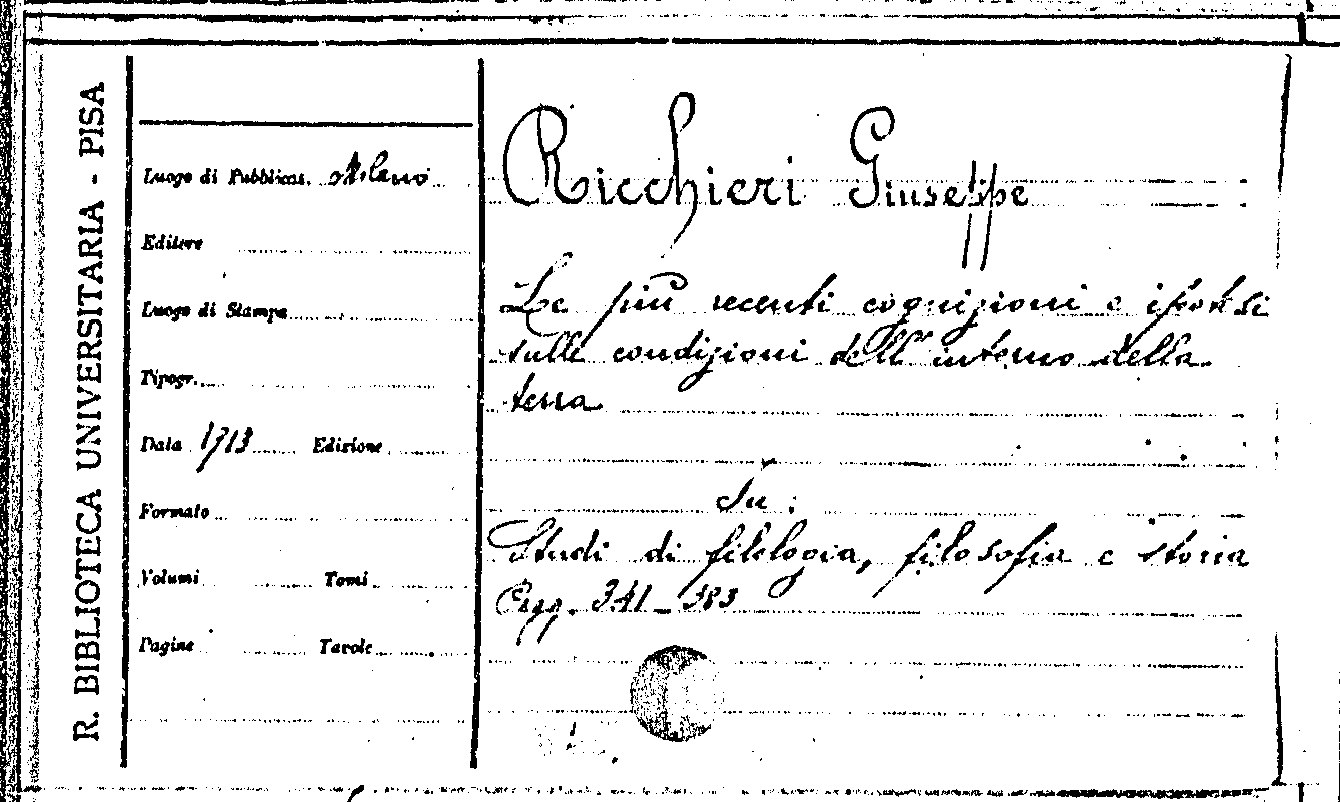 R. BIBLIOTECA UNIVERSITARIA - PISA
Luogo di Pubblicaz. Milano
Editore
Luogo di Stampa
Tipogr.
Data 1913 Edizione
Formato
Volumi Tomi
Pagine Tavole
Ricchieri Giuseppe
Le più recenti cognizioni e ipotesi
sulle condizioni dell'interno della
terra
In:
Studi di filologia, filosofia e storia
Pagg. 341-383